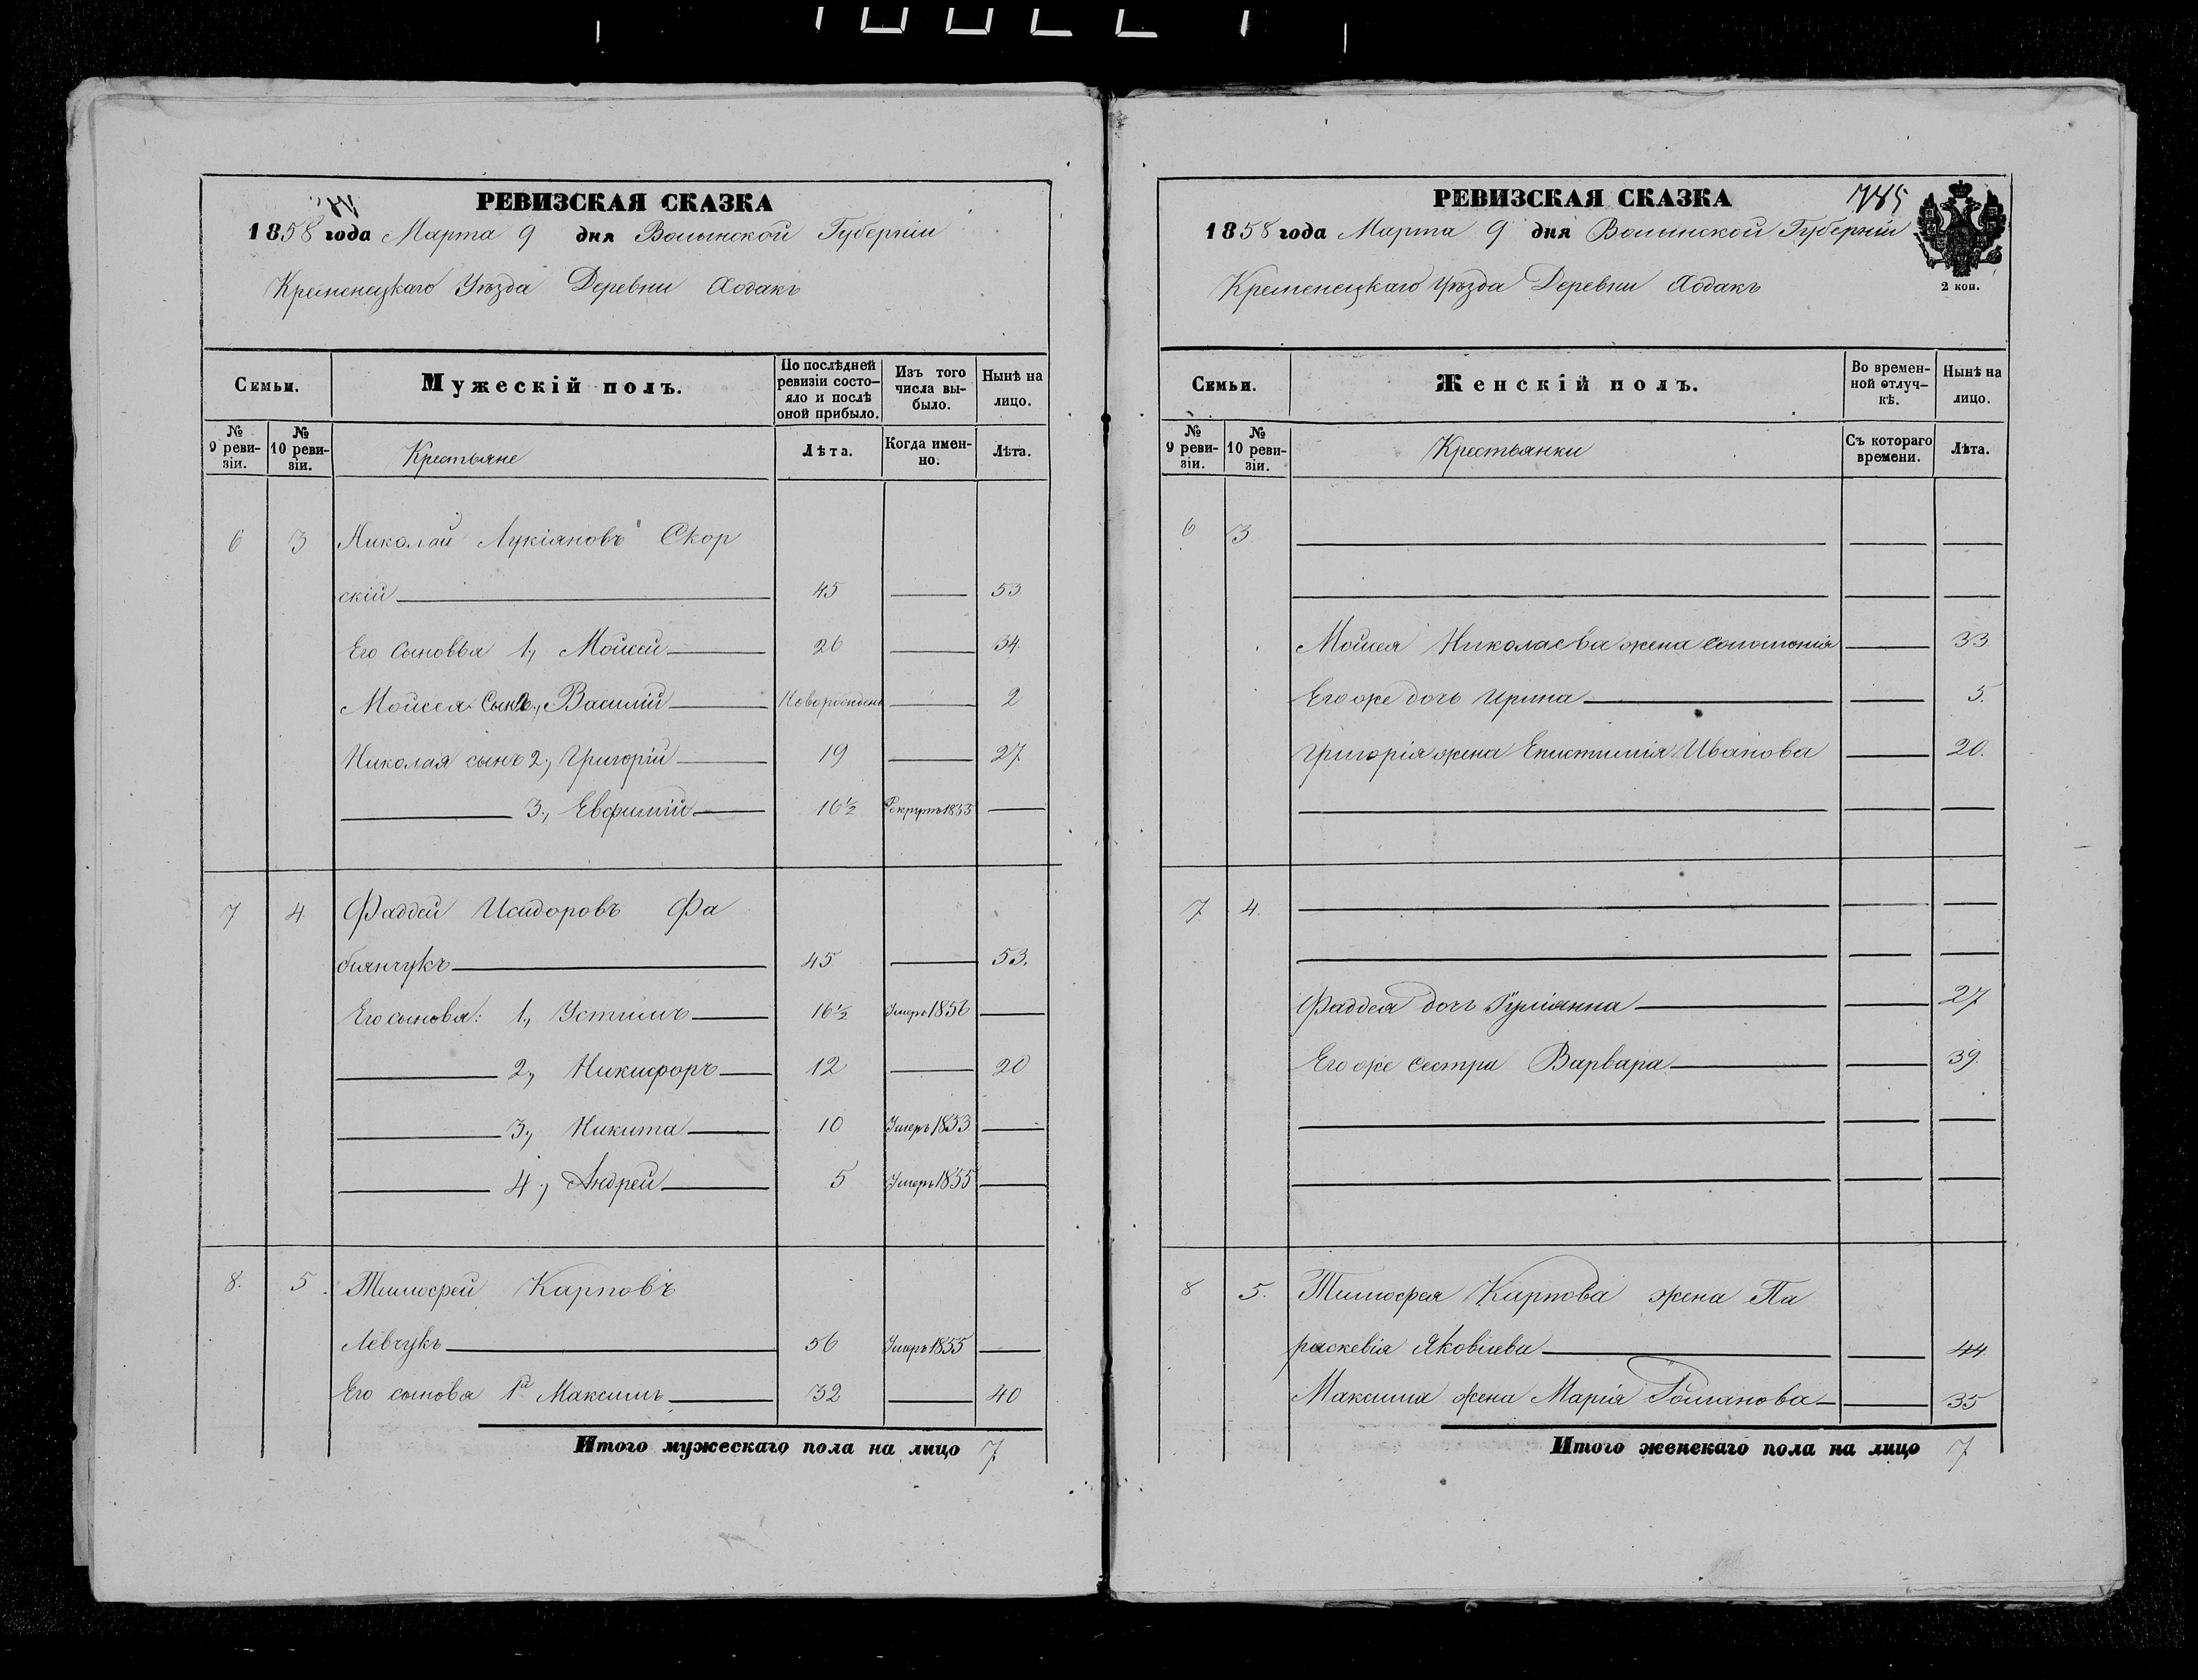 РЕВИЗСКАЯ СКАЗКА
1858 года Марта 9 дня Волынской Губерніи
Кременецкаго Уѣзда Деревни Лодакъ
Семьи.
Мужескій полъ.
По послѣдней ревизіи состояло и послѣ оной прибыло.
Изъ того числа выбыло.
Нынѣ на лицо.
№ 9 ревизіи.
№ 10 ревизіи.
Крестьяне
Лѣта.
Когда именно.
Лѣта.
6 3 Николай Лукіяновъ Скор
скій 45 53
Его сыновья 1, Мойсей 26 34.
Мойсея сынъ, Василій Новорожденъ 2
Николая сынъ 2, Григорій 19 27
3, Евфимій 16½ Рекрутъ 1853
7 4 Фаддей Исидоровъ Фа
біянчукъ 45 53.
Его сыновя: 1, Устимъ 16½ Умеръ 1856
2, Никифоръ 12 20
3, Никита 10 Умеръ 1853
4, Андрей 5 Умеръ 1855
8. 5. Тимофей Карповъ
Левчукъ 56 Умеръ 1855
Его сыновя 1й Максимъ 32 40
Итого мужескаго пола на лицо 7
РЕВИЗСКАЯ СКАЗКА 745
1858 года Марта 9 дня Волынской Губерніи
Кременецкаго Уѣзда Деревни Лодакъ
2 коп.
Семьи.
Женскій полъ.
Во временной отлучкѣ.
Нынѣ на лицо.
№ 9 ревизіи.
№ 10 ревизіи.
Крестьянки
Съ котораго времени.
Лѣта.
6 3.
Мойсея Николаева жена Соломонія 33
Его же дочь Ирина 5.
Григорія жена Епистимія Иванова 20.
7 4.
Фаддея дочь Іуліянна 27
Его же сестра Варвара 39.
8 5. Тимофея Карпова жена Па
раскевія Яковлева 44
Максима жена Марія Романова 35
Итого женскаго пола на лицо 7